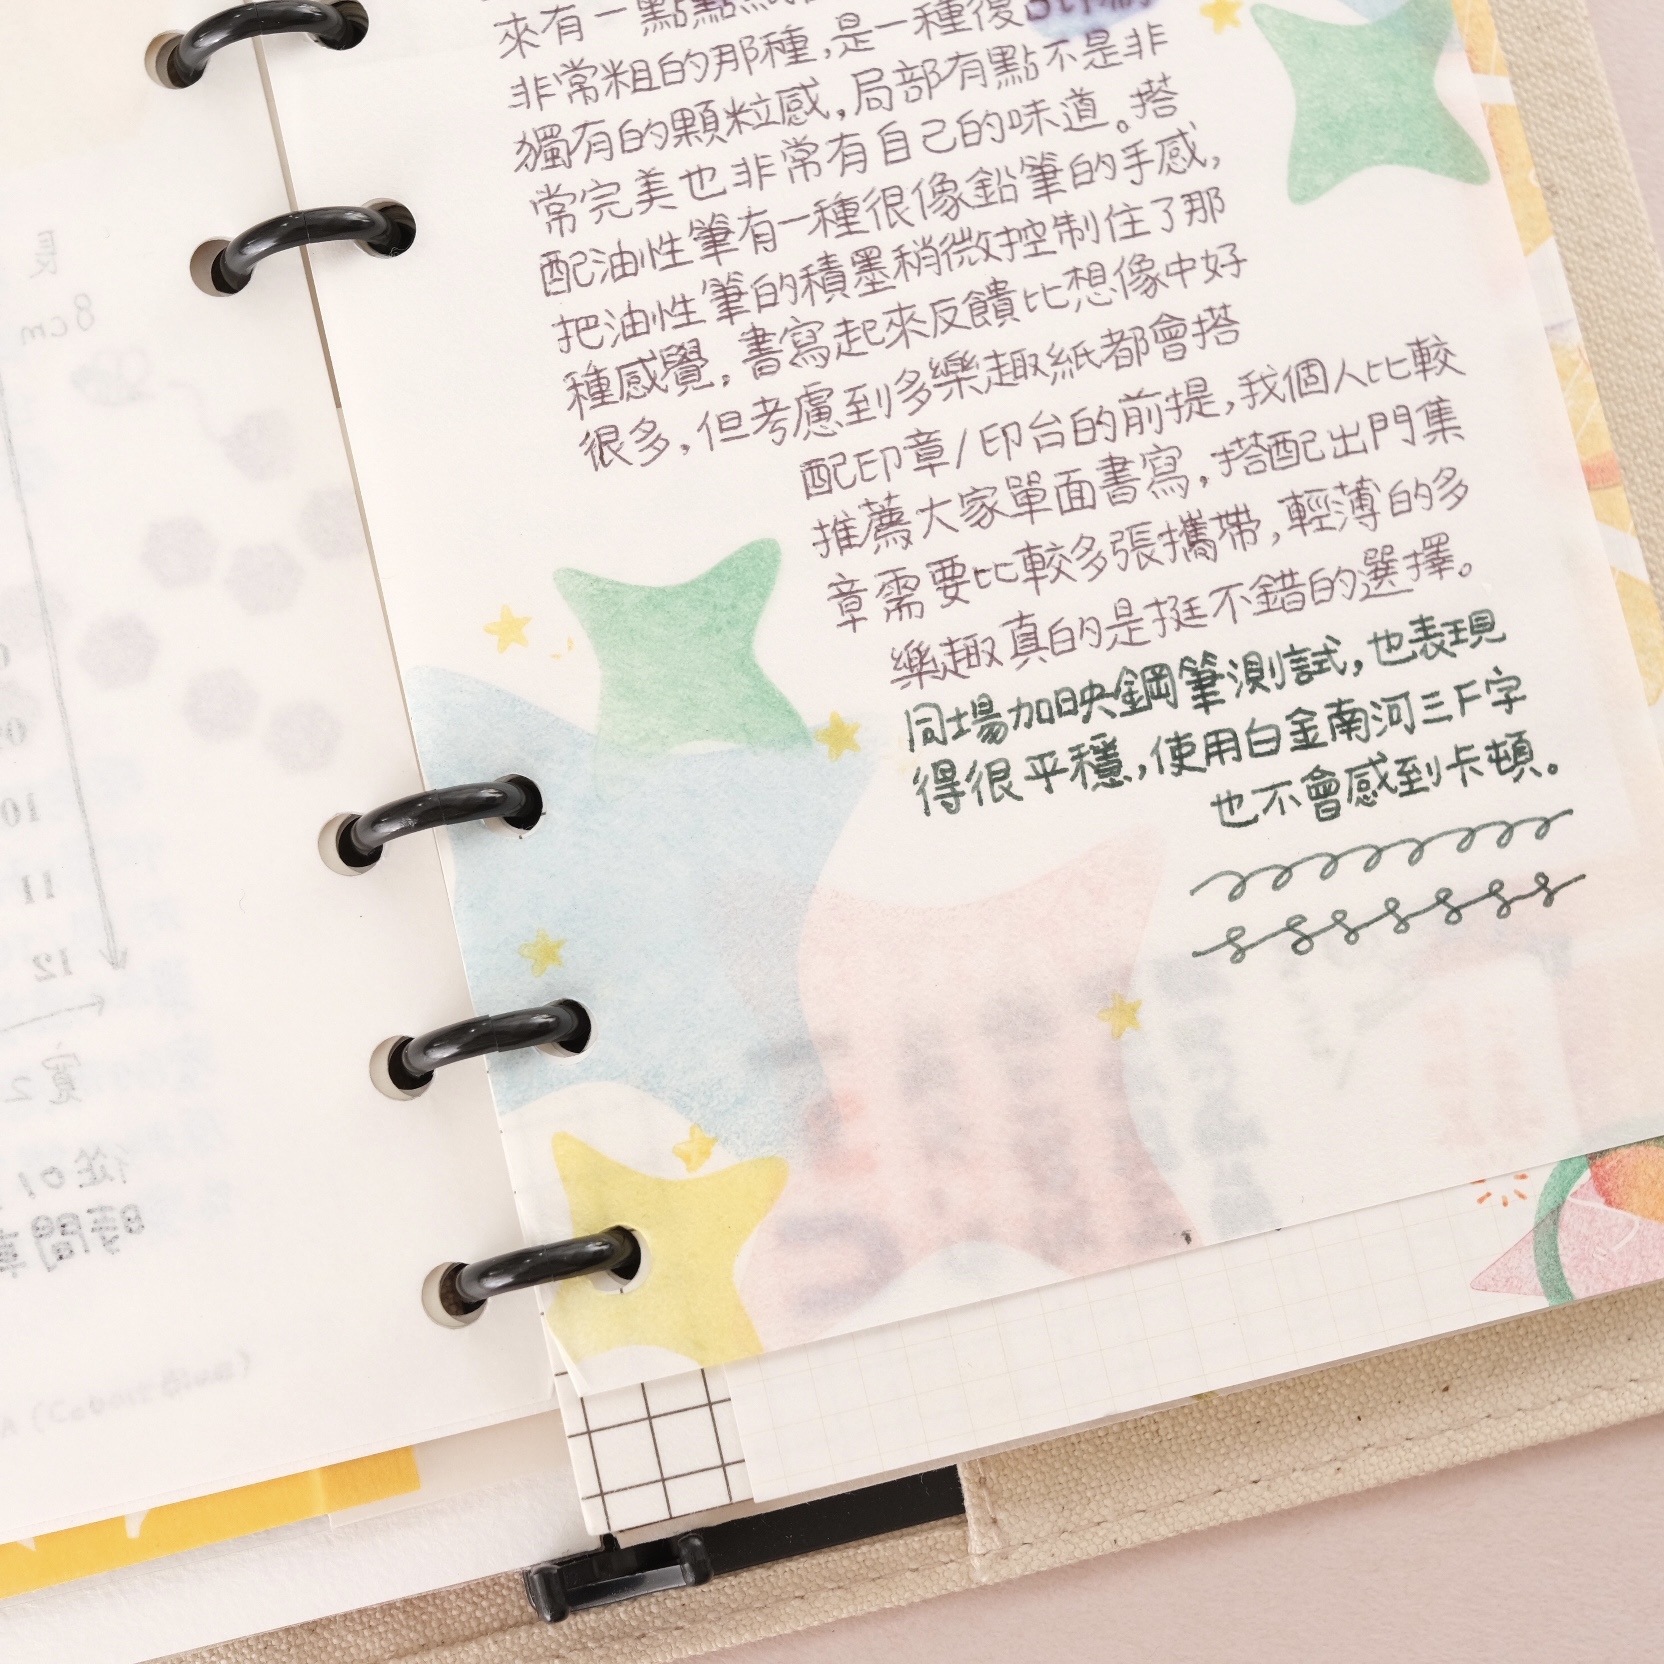 來有一點點
非常粗的那種,是一種很
獨有的顆粒感,局部有點不是非
常完美也非常有自己的味道。搭
配油性筆有一種很像鉛筆的手感,
把油性筆的積墨稍微控制住了那
種感覺,書寫起來反饋比想像中好
很多,但考慮到多樂趣紙都會搭
配印章/印台的前提,我個人比較
推薦大家單面書寫,搭配出門集
章需要比較多張攜帶,輕薄的多
樂趣真的是挺不錯的選擇。
同場加映鋼筆測試,也表現
得很平穩,使用白金南河三F字
也不會感到卡頓。
長
8cm
10
11
12
寬2
從01
時間